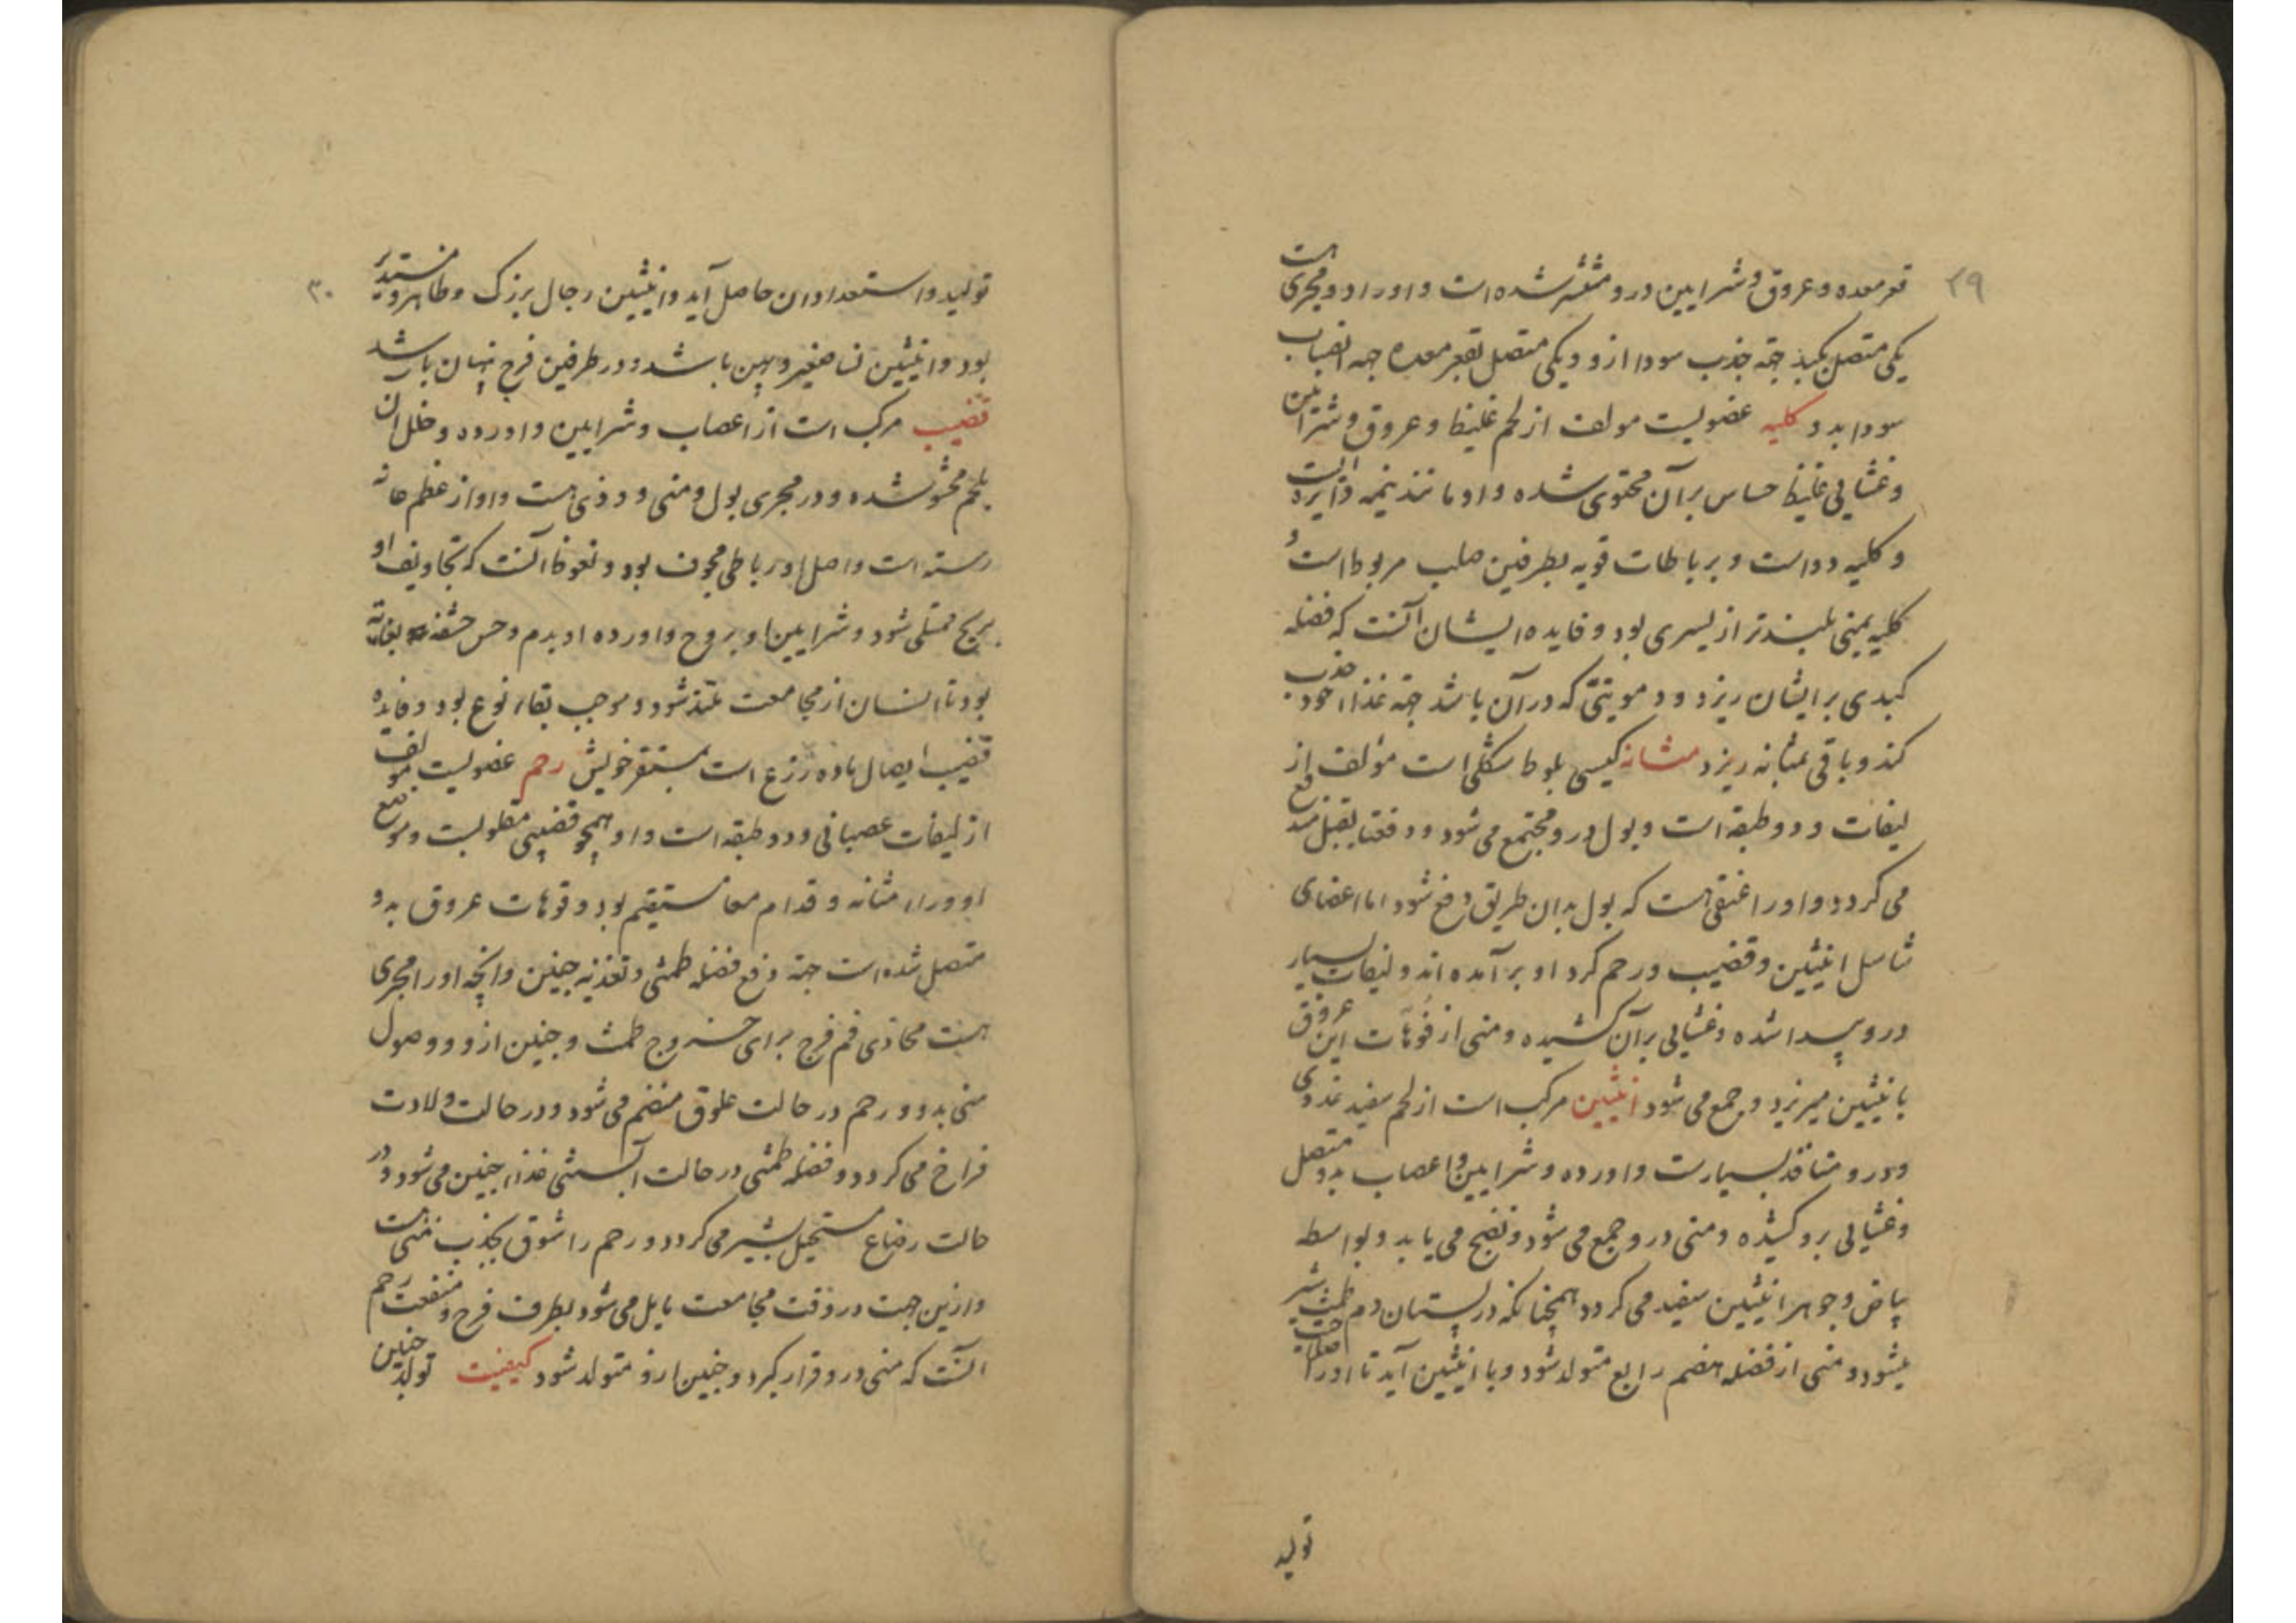 ۲۹
قعر معده و عروق و شرایین درو منتشر شده است و او را دو مجری است
یکی متصل بکبد جهة جذب سودا ازو و یکی متصل بقعر معده جهة انصباب
سودا بدو کلیه عضویست مولف از لحم غلیظ و عروق و شرائین
و غشایی غلیظ حساس بر آن محتوی شده و او مانند نیمه دایره است
و کلیه دو است و برباطات قویه بطرفین صلب مربوط است و
کلیه یمنی بلندتر از یسری بود و فایده ایشان آنست که فضله
کبدی برایشان ریزد و دمویتی که در آن باشد جهة غذاء خود جذب
کند و باقی بمثانه ریزد مثانه کیسی بلوط شکلی است مؤلف از
لیفات و دو طبقه است و بول درو مجتمع می شود و دفعتا
می گردد و او را عنقی است که بول بدان طریق دفع شود اما اعضای
تناسل انثیین و قضیب و رحم گرد او بر آمده اند و لیفات بسیار
درو پیدا شده و غشایی بر آن کشیده و منی از فوهات این عروق
بانثیین میریزد و جمع می شود انثیین مرکب است از لحم سفید غددی
و درو منافذ بسیارست و اورده و شرایین و اعصاب بدو متصل
و غشایی برو کشیده و منی درو جمع می شود و نضج می یابد و بواسطه
بیاض و جوهر انثیین سفید می گردد همچنانکه در پستان دم طمث شیر
میشود و منی از فضله هضم رابع متولد شود و با انثیین آید تا او را صلاحیت
تولید
۳۰
تولید و استعداد آن حاصل آید و انثیین رجال بزرگ و ظاهر و مستدیر
بود و انثیین نسا صغیر و پهن باشد و در طرفین فرج پنهان باشد
قضیب مرکب است از اعصاب و شرایین و اورده و خلل آن
بلحم محشو شده و در مجری بول و منی و وذی است و او از عظم عانه
رسته است و اصل او رباطی مجوف بود و نعوظ آنست که تجاویف او
بریح ممتلی شود و شرایین او بروح و اورده او بدم و حس حشفه بغایة
بود تا انسان از مجامعت ملتذ شود و موجب بقاء نوع بود و فایده
قضیب ایصال ماده زرع است بمستقر خویش رحم عضویست مولف
از لیفات عصبانی و دو طبقه است و او همچو قضیبی مقلوبست و موضع
او وراء مثانه و قدام معا مستقیم بود و فوهات عروق بدو
متصل شده است جهة دفع فضله طمثی و تغذیه جنین و آنچه او را مجری
است محاذی فم فرج برای خروج طمث و جنین ازو و وصول
منی بدو و رحم در حالت علوق منضم می شود و در حالت ولادت
فراخ می گردد و فضله طمثی در حالت آبستنی غذاء جنین می شود و در
حالت رضاع مستحیل بشیر می گردد و رحم را شوق بجذب منی است
و ازین جهت در وقت مجامعت مایل می شود بطرف فرج و منفعت رحم
آنست که منی درو قرار گیرد و جنین ازو متولد شود کیفیت تولید جنین